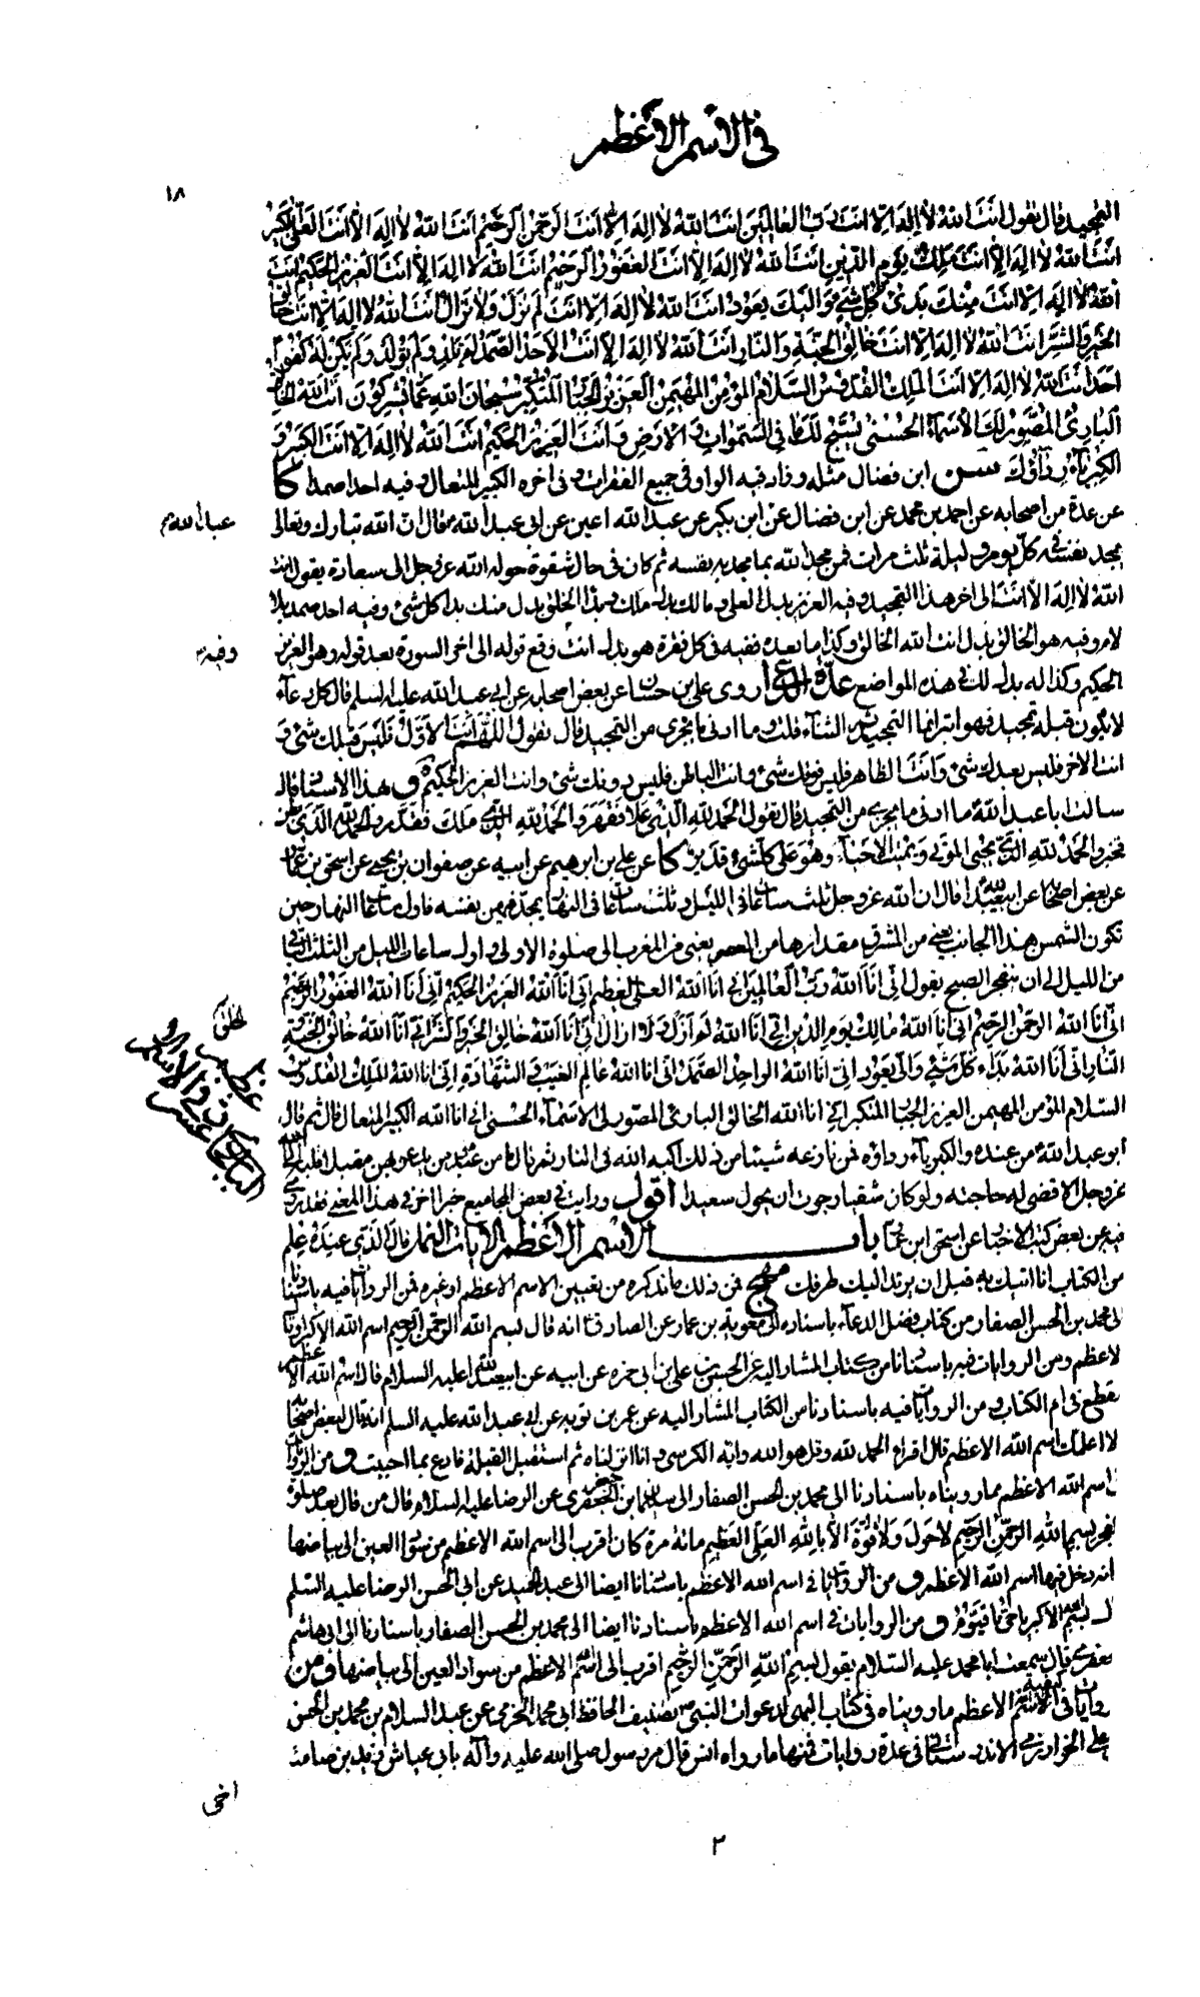 في الاسم الاعظم
١٨
التمجيد قال تقول انت الله لا اله الا انت رب العالمين انت الله لا اله الا انت الرحمن الرحيم انت الله لا اله الا انت العلي الكبير
انت الله لا اله الا انت ملك يوم الدين انت الله لا اله الا انت الغفور الرحيم انت الله لا اله الا انت العزيز الحكيم انت
الله لا اله الا انت منك بدئ كل شئ واليك يعود انت الله لا اله الا انت لم تزل ولا تزال انت الله لا اله الا انت خالق
الخير والشر انت الله لا اله الا انت خالق الجنة والنار انت الله لا اله الا انت الاحد الصمد لم يلد ولم يولد ولم يكن له كفوا
احد انت الله لا اله الا انت الملك القدوس السلام المؤمن المهيمن العزيز الجبار المتكبر سبحان الله عما يشركون انت الله الخالق
البارئ المصور لك الاسماء الحسنى يسبح لك ما في السموات والارض وانت العزيز الحكيم انت الله لا اله الا انت الكبير و
الكبرياء رداؤك سن ابن فضال مثله وزاد فيه الواو في جميع الفقرات وفي اخره الكبير المتعال وفيه احدا صمدا كا
عن عدة من اصحابه عن احمد بن محمد عن ابن فضال عن ابن بكير عن عبد الله اعين عن ابي عبد الله ع قال ان الله تبارك وتعالى
يمجد نفسه في كل يوم وليلة ثلث مرات فمن مجد الله بما مجد به نفسه ثم كان في حال شقوة حوله الله عز وجل الى سعادة يقول انت
الله لا اله الا انت الى اخر هذا التمجيد وفيه العزيز بدل العلي ومالك بدل ملك وبدا الخلق بدل منك بدا كل شئ وفيه احد صمد بلا
لام وفيه هو الخالق بدل انت الله الخالق وكذا ما بعده ففيه في كل فقرة هو بدل انت وقع قوله الى اخر السورة بعد قوله وهو العزيز
الحكيم وكذا له بدل لك في هذه المواضع عدة الداعي روى علي بن حسان عن بعض اصحابه عن ابي عبد الله عليه السلم قال كل دعاء
لا يكون قبله تمجيد فهو ابتر انما التمجيد ثم الثناء قلت وما ادنى ما يجزي من التمجيد قال تقول اللهم انت الاول فليس قبلك شئ و
انت الاخر فليس بعدك شئ وانت الظاهر فليس فوقك شئ وانت الباطن فليس دونك شئ وانت العزيز الحكيم وبهذا الاسناد قال
سالت ابا عبد الله ع ما ادنى ما يجزي من التمجيد قال تقول الحمد لله الذي علا فقهر والحمد لله الذي ملك فقدر والحمد لله الذي بطن
فخبر والحمد لله الذي يحيي الموتى ويميت الاحياء وهو على كل شئ قدير كا عن علي بن ابراهيم عن ابيه عن صفوان بن يحيى عن اسحق بن عمار
عن بعض اصحابنا عن ابي عبد الله ع قال ان الله عز وجل ثلث ساعات في الليل وثلث ساعات في النهار يمجد فيهن نفسه فاول ساعات النهار حين
تكون الشمس هذا الجانب يعني من المشرق مقدارها من العصر يعني من المغرب الى صلوة الاولى واول ساعات الليل من الثلث الباقي
من الليل الى ان ينفجر الصبح يقول اني انا الله رب العالمين اني انا الله العلي العظيم اني انا الله العزيز الحكيم اني انا الله الغفور الرحيم
اني انا الله الرحمن الرحيم اني انا الله مالك يوم الدين اني انا الله لم ازل ولا ازال اني انا الله خالق الخير والشر اني انا الله خالق الجنة و
النار اني انا الله بدء كل شئ والي يعود اني انا الله الواحد الصمد اني انا الله عالم الغيب والشهادة اني انا الله الملك القدوس
السلام المؤمن المهيمن العزيز الجبار المتكبر اني انا الله الخالق البارئ المصور لي الاسماء الحسنى اني انا الله الكبير المتعال قال ثم قال
ابو عبد الله ع من عنده والكبرياء رداؤه فمن نازعه شيئا من ذلك اكبه الله في النار ثم قال ما من عبد مؤمن يدعو بهن مقبل قلبه الى الله
عز وجل الا قضى له حاجته ولو كان شقيا رجوت ان يحول سعيدا اقول ورايت في بعض المجاميع خبرا اخر في هذا المعنى فقد روى
فيه عن بعض كتب الاخبار عن اسحق ابن عمار باب الاسم الاعظم الايات النمل قال الذي عنده علم
من الكتاب انا اتيك به قبل ان يرتد اليك طرفك مهج فمن ذلك ما نذكره من تعيين الاسم الاعظم او غيره فمن الروايات فيه باسنادنا
الى محمد بن الحسن الصفار من كتاب فضل الدعاء باسناده الى معوية بن عمار عن الصادق ع انه قال بسم الله الرحمن الرحيم اسم الله الاكبر او قال
الاعظم ومن الروايات فيه باسنادنا من كتاب المشار اليه عن الحسين بن علي بن ابي حمزه عن ابيه عن ابي عبد الله عليه السلام قال اسم الله الاعظم
مقطع في ام الكتاب ومن الروايات فيه باسنادنا من الكتاب المشار اليه عن عمر بن توبه عن ابي عبد الله عليه السلم انه قال لبعض اصحابه
الا اعلمك اسم الله الاعظم قال اقرا الحمد لله وقل هو الله واية الكرسي وانا انزلناه ثم استقبل القبلة فادع بما احببت ومن الروايات
في اسم الله الاعظم مما رويناه باسنادنا الى محمد بن الحسن الصفار الى سليمان ابن جعفر الجعفري عن الرضا عليه السلام قال من قال بعد صلوة
الفجر بسم الله الرحمن الرحيم لا حول ولا قوة الا بالله العلي العظيم مائة مرة كان اقرب الى اسم الله الاعظم من سواد العين الى بياضها
انه دخل فيها اسم الله الاعظم ومن الروايات في اسم الله الاعظم باسنادنا ايضا الى عبد الحميد عن ابي الحسن الرضا عليه السلم
قال بسم الله الاكبر يا حي يا قيوم ومن الروايات في اسم الله الاعظم باسنادنا ايضا الى محمد بن الحسن الصفار باسنادنا الى ابي هاشم
الجعفري قال سمعت ابا محمد عليه السلام يقول بسم الله الرحمن الرحيم اقرب الى اسم الله الاعظم من سواد العين الى بياضها ومن
روايات في كيفية الاسم الاعظم ما رويناه في كتاب البهي لدعوات النبي ص تصنيف الحافظ ابي محمد الحرمي عن عبد السلام بن محمد بن الحسن
علي الخوارزمي الاندرستاني في عدة روايات فمنها ما رواه انس قال مر رسول صلى الله عليه وآله بابي عياش زيد بن صامت
عبد الله م
وفيه
اخي
٢